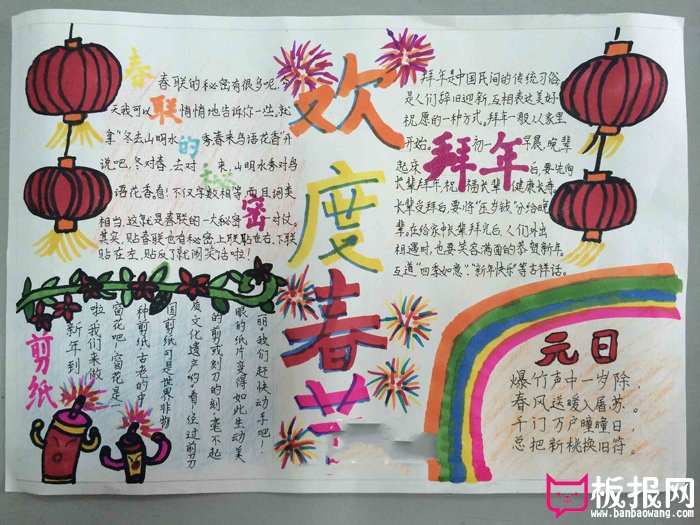 欢度春节
春联的秘密
春联的秘密有很多呢,今
天我可以悄悄地告诉你一些。就
拿"冬去山明水秀,春来鸟语花香"来
说吧,冬对春,去对来,山明水秀对鸟
语花香,意!不仅字数相等,而且词类
相当,这就是春联的一大秘密——对仗。
其实,贴春联也有秘密,上联贴在右,下联
贴在左,贴反了就闹笑话啦!
拜年
拜年是中国民间的传统习俗
是人们辞旧迎新、互相表达美好
祝愿的一种方式。拜年一般从家里
开始。初一早晨,晚辈
起床后,要先向
长辈拜年,祝福长辈健康长寿
长辈受拜后,要将"压岁钱"分给晚
辈。在给家中长辈拜完后,人们外出
相遇时,也要笑容满面的恭贺新年,
互道"四季如意"、"新年快乐"等吉祥话。
剪纸
新年到
啦,我们来做
窗花吧。窗花是一
种剪纸,古老的中
国剪纸可是世界非物
质文化遗产哟。看!经过剪刀
的剪或刻刀的刻,毫不起
眼的纸片变得如此生动美
丽。我们赶快动手吧!
元日
爆竹声中一岁除,
春风送暖入屠苏。
千门万户曈曈日,
总把新桃换旧符。
板报网
www.banbaowang.com